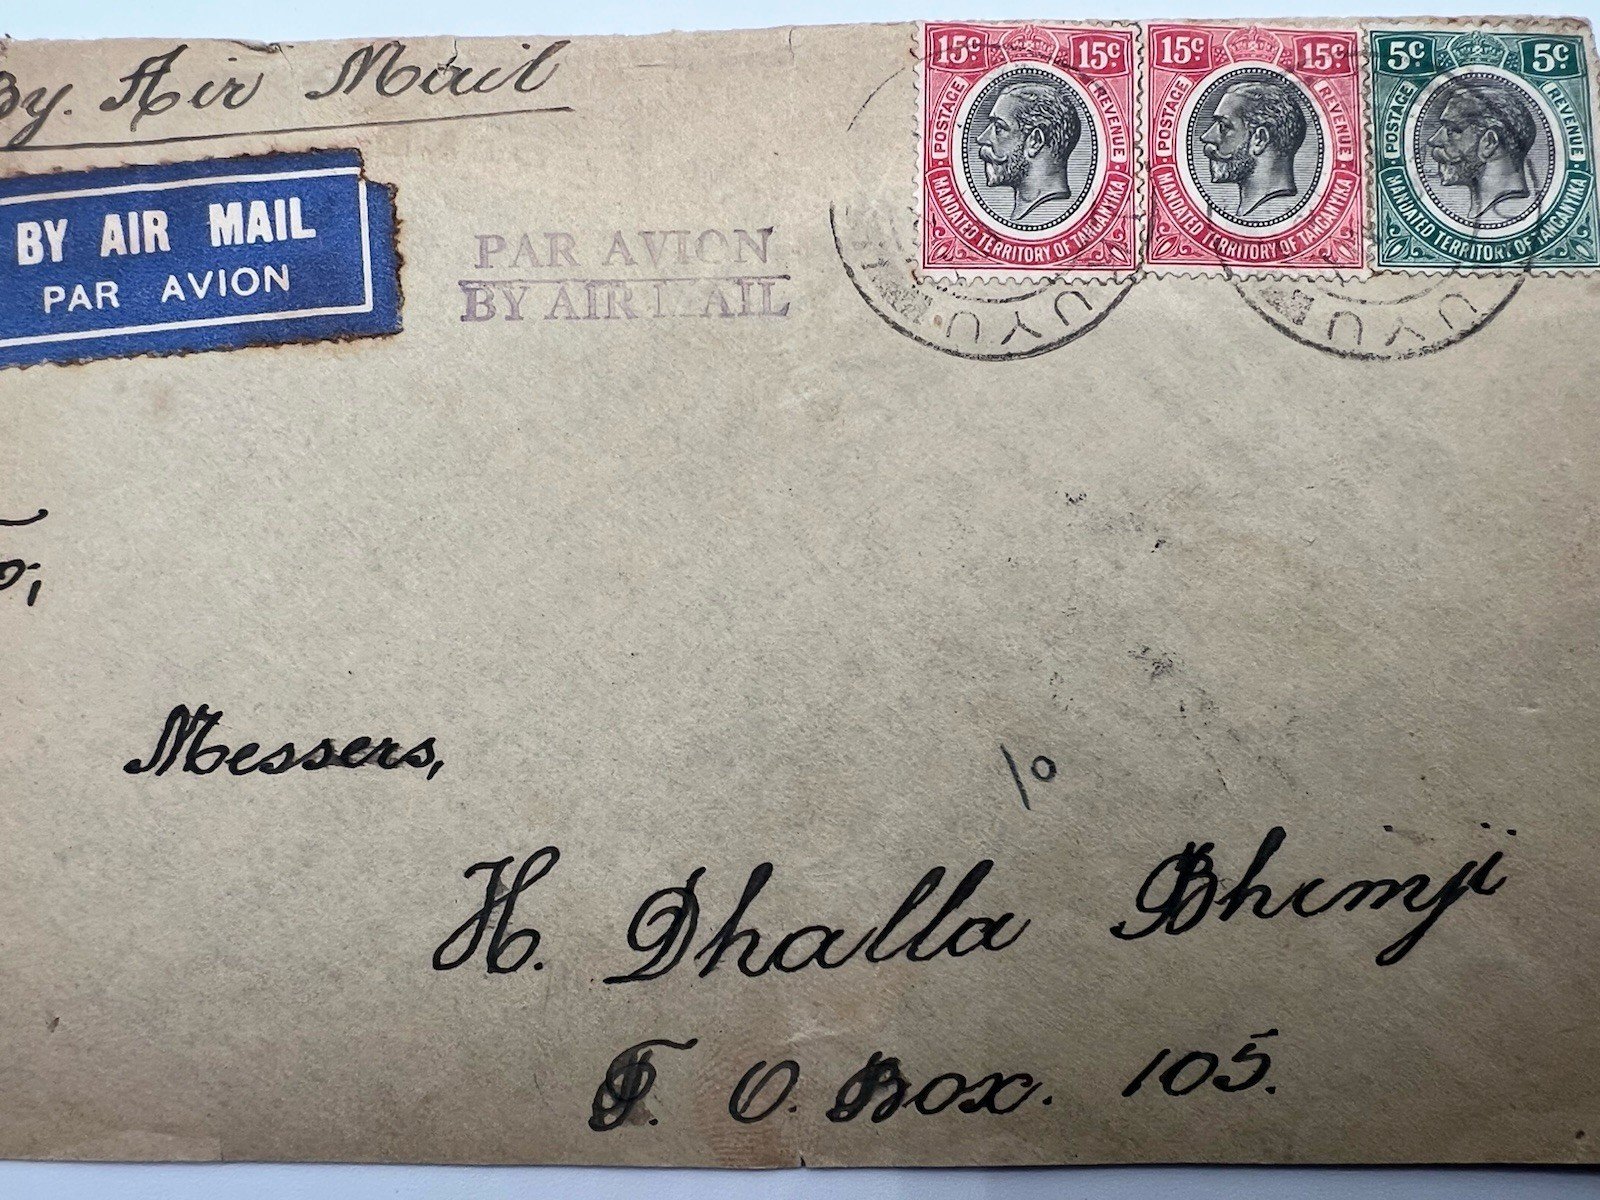 By. Air Mail
BY AIR MAIL
PAR AVION
PAR AVION
BY AIR MAIL
15c 15c
POSTAGE REVENUE
MANDATED TERRITORY OF TANGANYIKA
15c 15c
POSTAGE REVENUE
MANDATED TERRITORY OF TANGANYIKA
5c 5c
POSTAGE REVENUE
MANDATED TERRITORY OF TANGANYIKA
To,
Messers,
10
H. Dhalla Bhimji
P. O. Box. 105.